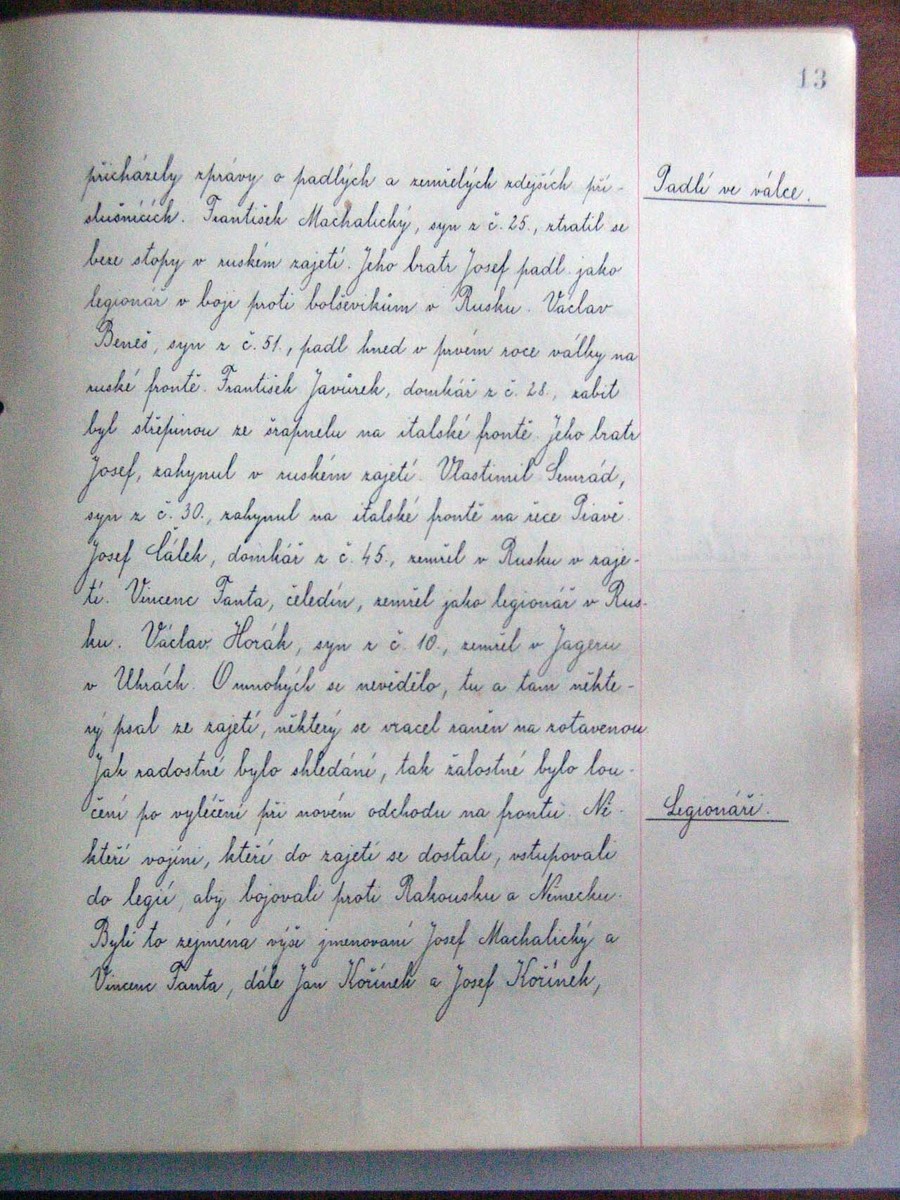 13
přicházely zprávy o padlých a zemřelých zdejších pří-
slušnících. František Machalický, syn z č. 25., ztratil se
beze stopy v ruském zajetí. Jeho bratr Josef padl jako
legionář v boji proti bolševikům v Rusku. Václav
Beneš, syn z č. 51., padl hned v prvém roce války na
ruské frontě. František Javůrek, domkář z č. 28., zabit
byl střepinou ze šrapnelu na italské frontě. Jeho bratr
Josef, zahynul v ruském zajetí. Vlastimil Semrád,
syn z č. 30., zahynul na italské frontě na řece Piavě.
Josef Cálek, domkář z č. 45., zemřel v Rusku v zaje-
tí. Vincenc Fanta, čeledín, zemřel jako legionář v Rus-
ku. Václav Horák, syn z č. 10., zemřel v Jageru
v Uhrách. O mnohých se nevědělo, tu a tam někte-
rý psal ze zajetí, některý se vracel raněn na zotavenou
Jak radostné bylo shledání, tak žalostné bylo lou-
čení po vyléčení při novém odchodu na frontu. Ně-
kteří vojíni, kteří do zajetí se dostali, vstupovali
do legií, aby bojovali proti Rakousku a Německu.
Byli to zejména výše jmenovaní Josef Machalický a
Vincenc Fanta, dále Jan Kořínek a Josef Kořínek,
Padlí ve válce.
Legionáři.